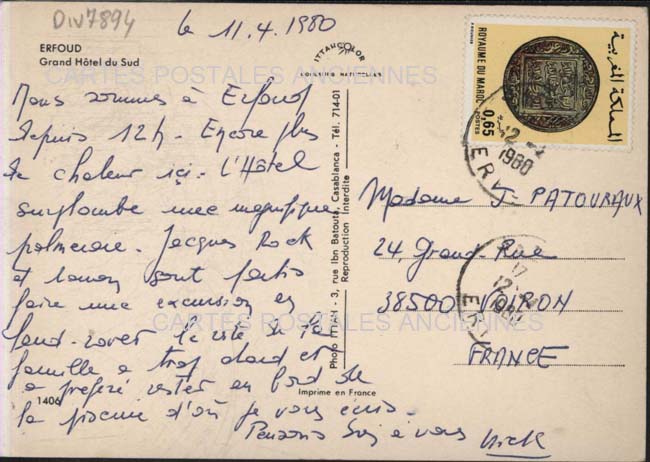 Div7894
le 11.4.1980
ERFOUD
Grand Hôtel du Sud
CARTES POSTALES ANCIENNES
ITTAHCOLOR
Nous sommes à Erfoud
depuis 12h - Encore plus
de chaleur ici. L'Hôtel
surplombe une magnifique
palmeraie. Jacques Rock
et sont partis
faire une excursion en
land-rover le reste de la
famille a trop chaud et
a préféré rester en bord de
la piscine d'où je vous écris.
Pensons à vous
1406
Photo ITTAH - 3, rue Ibn Batouta, Casablanca - Tél. 714-01
Reproduction Interdite
Imprimé en France
ROYAUME DU MAROC
POSTES
0,65
المملكة المغربية
1980
Madame J PATOURAUX
24, Grand-Rue
38500 VOIRON
FRANCE
17
12
1980
CARTES POSTALES ANCIENNES